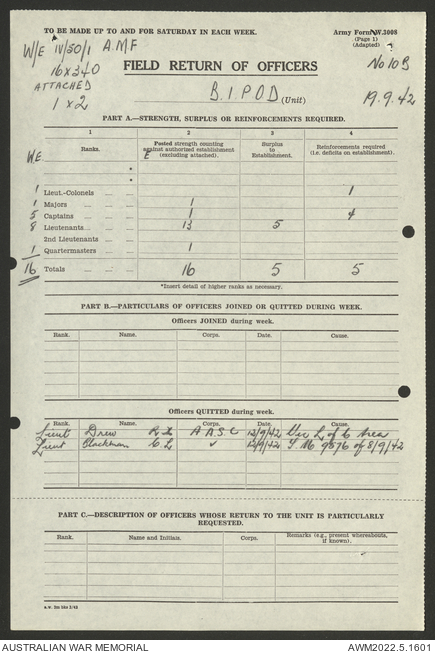 TO BE MADE UP TO AND FOR SATURDAY IN EACH WEEK.
Army Form W.3008
(Page 1)
(Adapted)
W/E IV/50/1 A.M.F
16 x 340
ATTACHED
1 x 2
No 10B
FIELD RETURN OF OFFICERS
B.I.P.O.D (Unit)
19.9.42
PART A.—STRENGTH, SURPLUS OR REINFORCEMENTS REQUIRED.
1 2 3 4
W.E. Ranks. Posted strength counting against authorized establishment (excluding attached). Surplus to Establishment. Reinforcements required (i.e. deficits on establishment).
E
*
*
1 Lieut.-Colonels 1
1 Majors 1
5 Captains 1 4
8 Lieutenants 13 5
2nd Lieutenants
1 Quartermasters 1
16 Totals 16 5 5
*Insert detail of higher ranks as necessary.
PART B.—PARTICULARS OF OFFICERS JOINED OR QUITTED DURING WEEK.
Officers JOINED during week.
Rank. Name. Corps. Date. Cause.
Officers QUITTED during week.
Rank. Name. Corps. Date. Cause.
Lieut Drew A.A.S.C 12/9/42 L of C Area
Lieut Blackman C.L 12/9/42 9576 of 8/9/42
PART C.—DESCRIPTION OF OFFICERS WHOSE RETURN TO THE UNIT IS PARTICULARLY
REQUESTED.
Rank. Name and Initials. Corps. Remarks (e.g., present whereabouts, if known).
AUSTRALIAN WAR MEMORIAL
AWM2022.5.1601